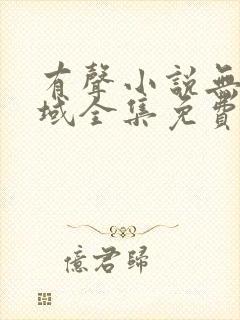 有聲小說無
域全集免費
億君歸